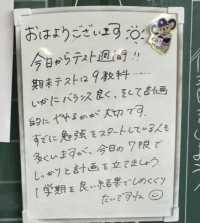 おはようございます
今日からテスト週間!!
期末テストは9教科……
いかにバランス良く、そして計画
的にやれるかが大切です。
すでに勉強をスタートしている人も
多くいますが、今日の7限で
しっかりと計画を立てましょう
1学期を良い結果でしめくくり
たいですね